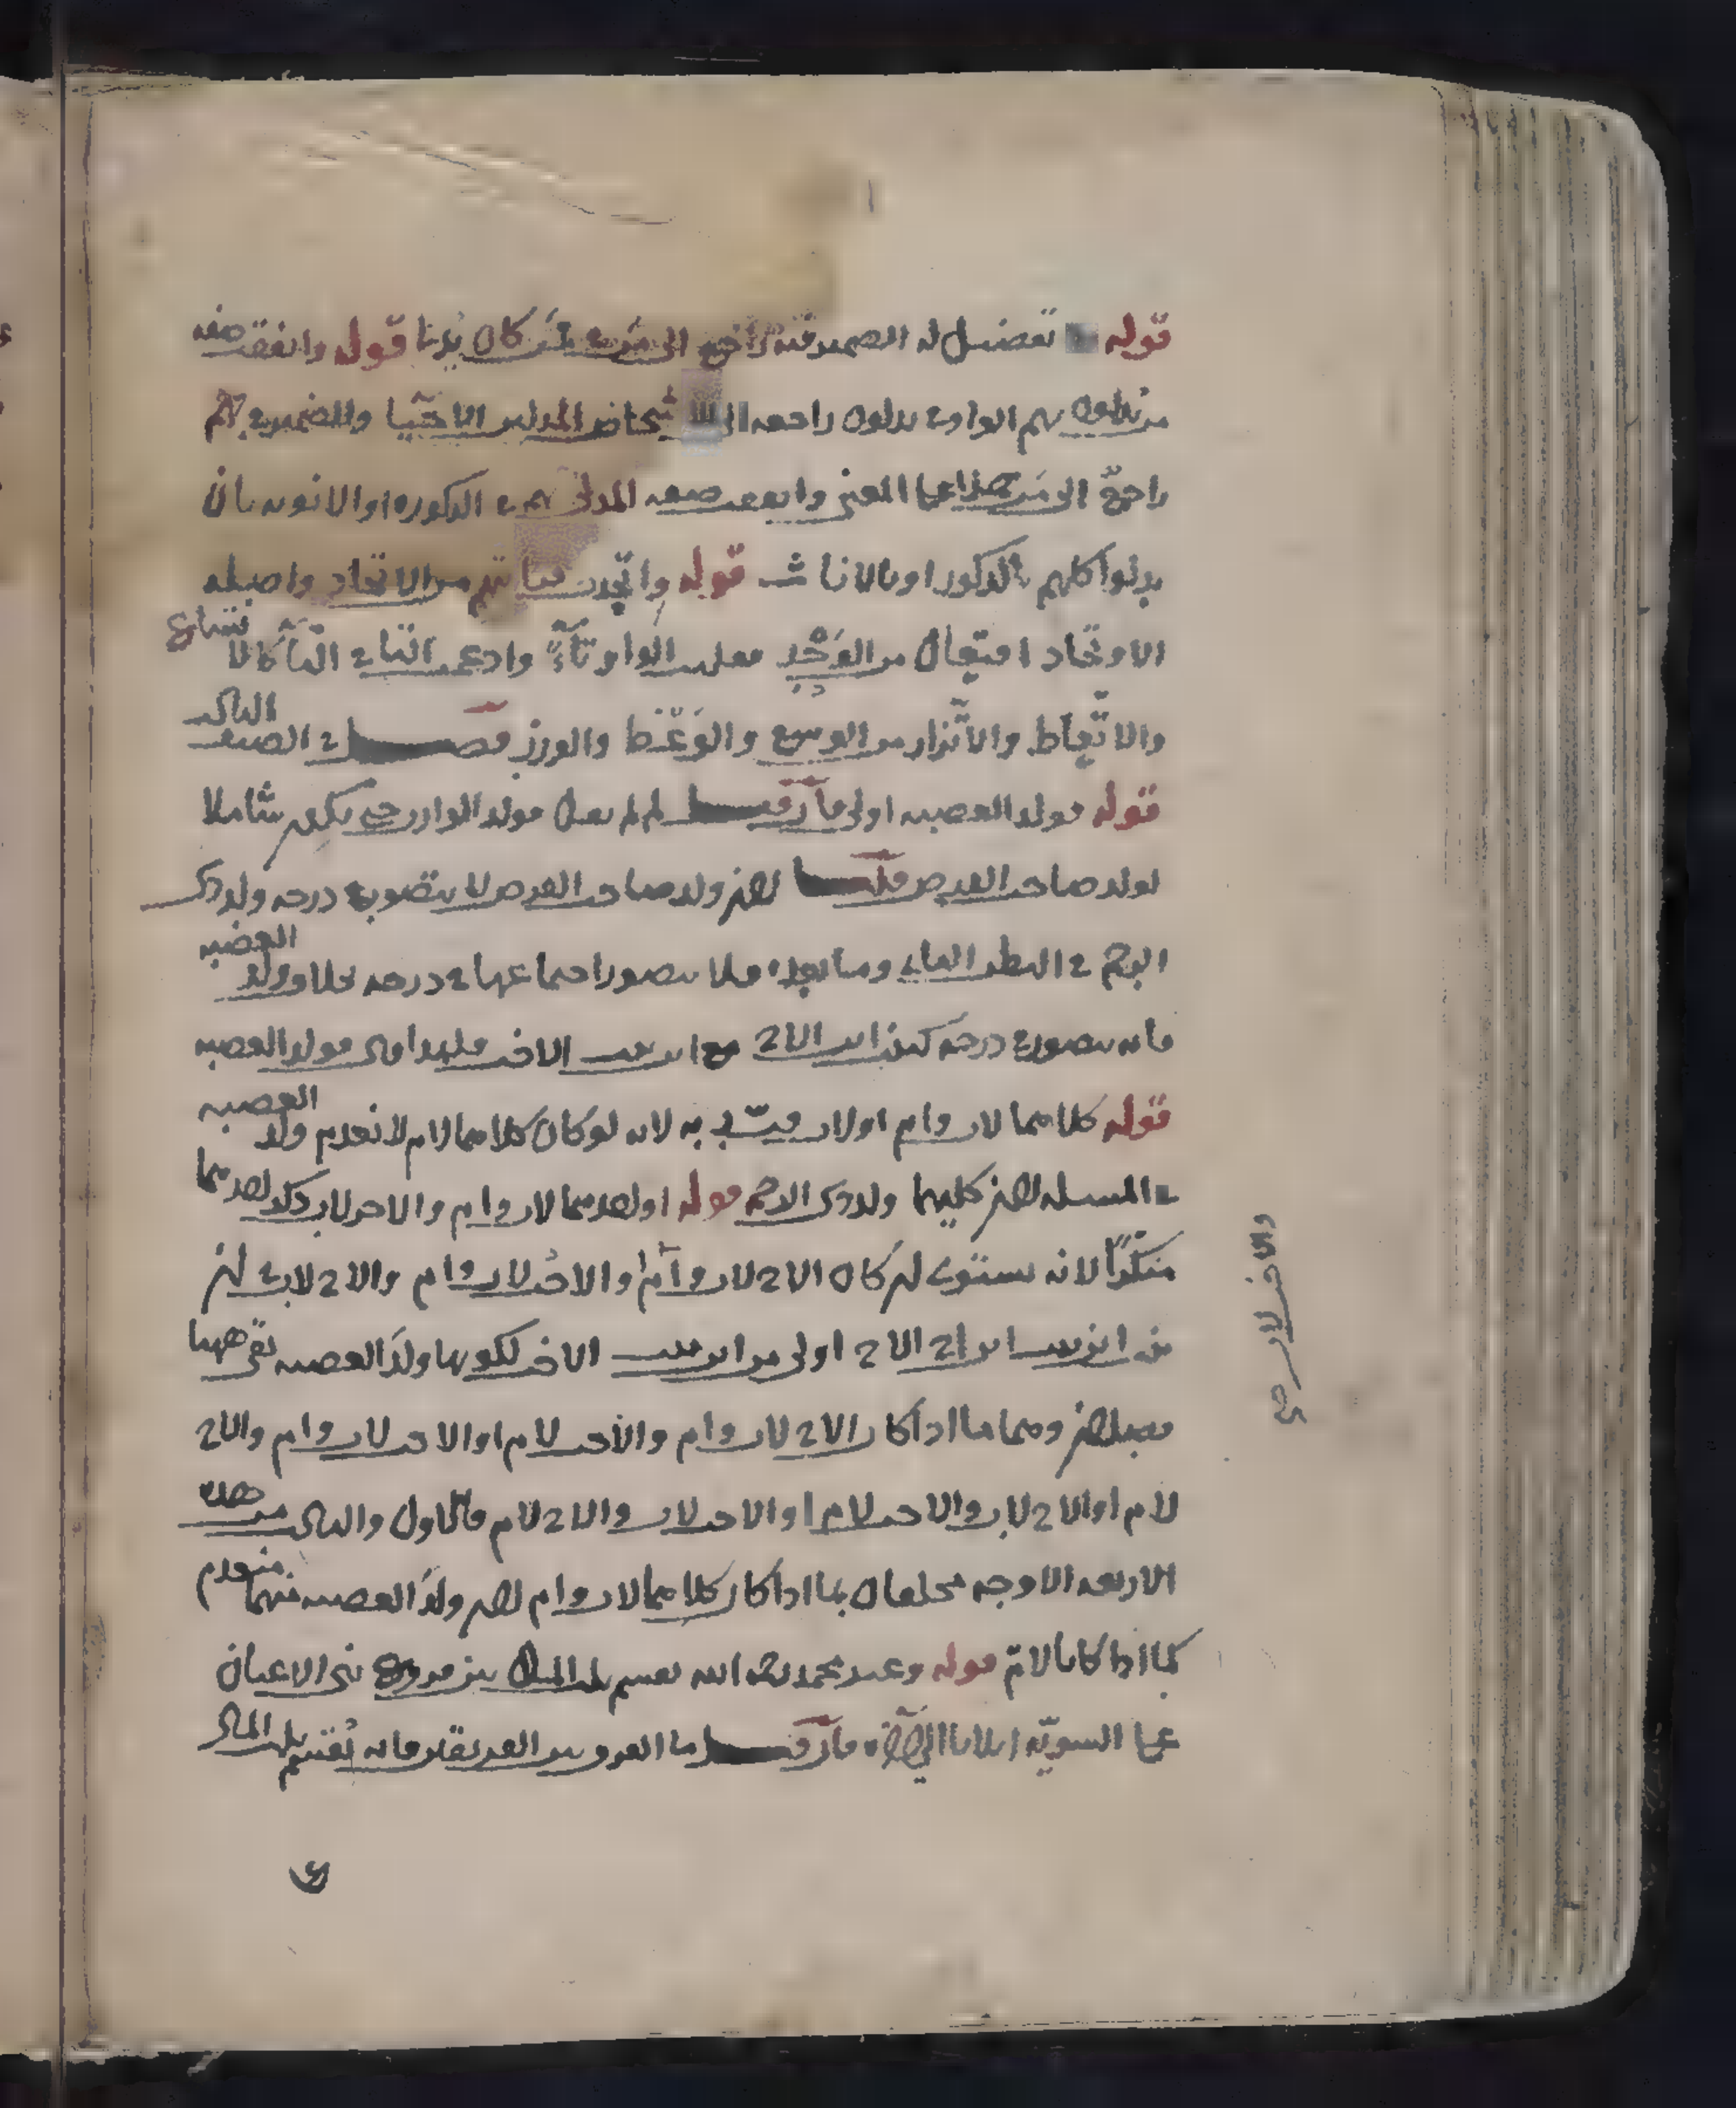 قوله تفضيل له الضمير فيه راجع الى من في من كان يدنا قوله واتفقت صفة
من يدلون بهم الواو في يدلون راجعة الى اشخاص المدلين الاحيا والضمير في بهم
راجع الى من هذا على المعنى واتفقت صفة المدلى بهم في الذكورة او الانوثة بان
يدلوا كلهم بالذكور او بالاناث قوله واتحدت قرابتهم من الاتحاد واصله
الاوتحاد افتعال من الوحد فقلبت الواو تاء وادغمت التاء في التاء كالاتساع
والاتعاظ والاتزار من الوسع والوعظ والوزر فصل في الصنف الثالث
قوله فولد العصبة اولى فان قيل لم لم يقل فولد الوارث حتى يكون شاملا
لولد صاحب الفرض قلنا لان ولد صاحب الفرض لا يتصور في درجة ولد ذي
الرحم في البطن الثاني وما بعده فلا يتصور اجتماعهما في درجة بخلاف ولد العصبة
فانه يتصور في درجة كبنت ابن الاخ مع ابن بنت الاخت فلهذا قال فولد العصبة
قوله كلاهما لاب وام او لاب قيد به لانه لو كان كلاهما لام لانعدم ولد العصبة
في المسئلة لان كليهما ولد ذي الرحم قوله او احدهما لاب وام والاخر لاب ذكر احدهما
منكرا لانه يستوي ان كان الاخ لاب وام والاخت لاب وام والاخ لاب في ان
بنت ابن الاخ اولى من ابن بنت الاخت لكونها ولد العصبة بقي ههنا
فصلان وهما ما اذا كان الاخ لاب وام والاخت لام او الاخت لاب وام والاخ
لام او الاخ لاب والاخت لام او الاخت لاب والاخ لام فالاول والثاني من هذه
الاربعة الاوجه ملحقان بما اذا كان كلاهما لاب وام لان ولد العصبة فيهما منعدم
كما اذا كانا لام قوله وعند محمد رحمه الله يقسم ثلث المال بين فروع بني الاعيان
على السوية اثلاثا فان قيل ما الفرق بين الفريقين فانه يقسم ثلث المال
والاخت لاب صح